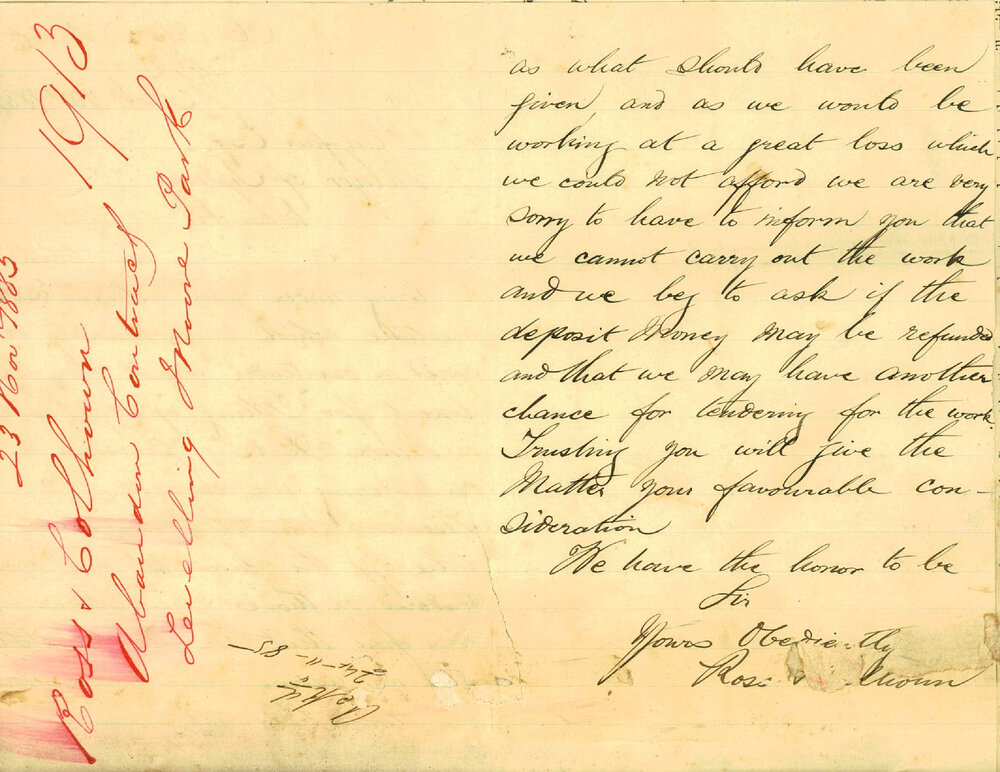 1913
23 Nov 1885
Ross & Colhown
Abandon Contract
Levelling Moore Park
24-11-85
as what should have been
given, and as we would be
working at a great loss which
we could not afford we are very
sorry to have to inform you that
we cannot carry out the work
and we beg to ask if the
deposit Money may be refunded
and that we may have another
chance for tendering for the work.
Trusting you will give the
Matter your favourable con-
sideration
We have the honor to be
Sir
Yours Obediently
Ross